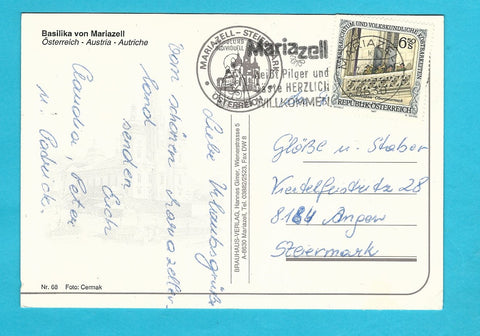 Basilika von Mariazell
Österreich - Austria - Autriche
MARIAZELL - STEIERMARK
ÖSTERREICH
Mariazell
heißt Pilger und
Gäste HERZLICH
WILLKOMMEN
6 50
S
REPUBLIK ÖSTERREICH
Liebe Urlaubsgrüße
vom schönen Mariazeller-
land senden Euch
Claudia, Peter
u. Patrick.
BRAUHAUS-VERLAG, Hannes Girrer, Wienerstrasse 5
A-8630 Mariazell, Tel. 03882/2523, Fax DW 8
u. Staber
Viertelfeistritz 28
8184 Anger
Steiermark
Nr. 68 Foto: Cermak